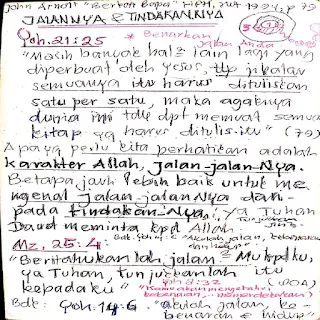 John Arnott "Bertemu Bapa"
JALANNYA & TINDAKANNYA
Yoh. 21:25 * Benarkan Jalan Anda
"Masih banyak hal2 lain lagi yang
diperbuat oleh Yesus, ttp jikalau
semuanya itu harus dituliskan
satu per satu, maka agaknya
dunia ini tdk dpt memuat semua
kitab yg harus ditulis itu" (79)
Apa yg perlu kita perhatikan adalah
karakter Allah, jalan-jalan-Nya.
Betapa jauh lebih baik untuk me
ngenal jalan-jalanNya dari-
pada tindakan-Nya. ya Tuhan
Daud meminta kpd Allah.
Mz. 25:4
"Beritahukanlah jalan2 Mu kpdku,
ya Tuhan, tunjukkanlah itu
kepadaku" Yoh 8:32
"Kamu akan mengetahui
kebenaan, memerdekakan"
Bdk: Yoh. 14:6. "akulah jalan, ke-
benaran & hidup"